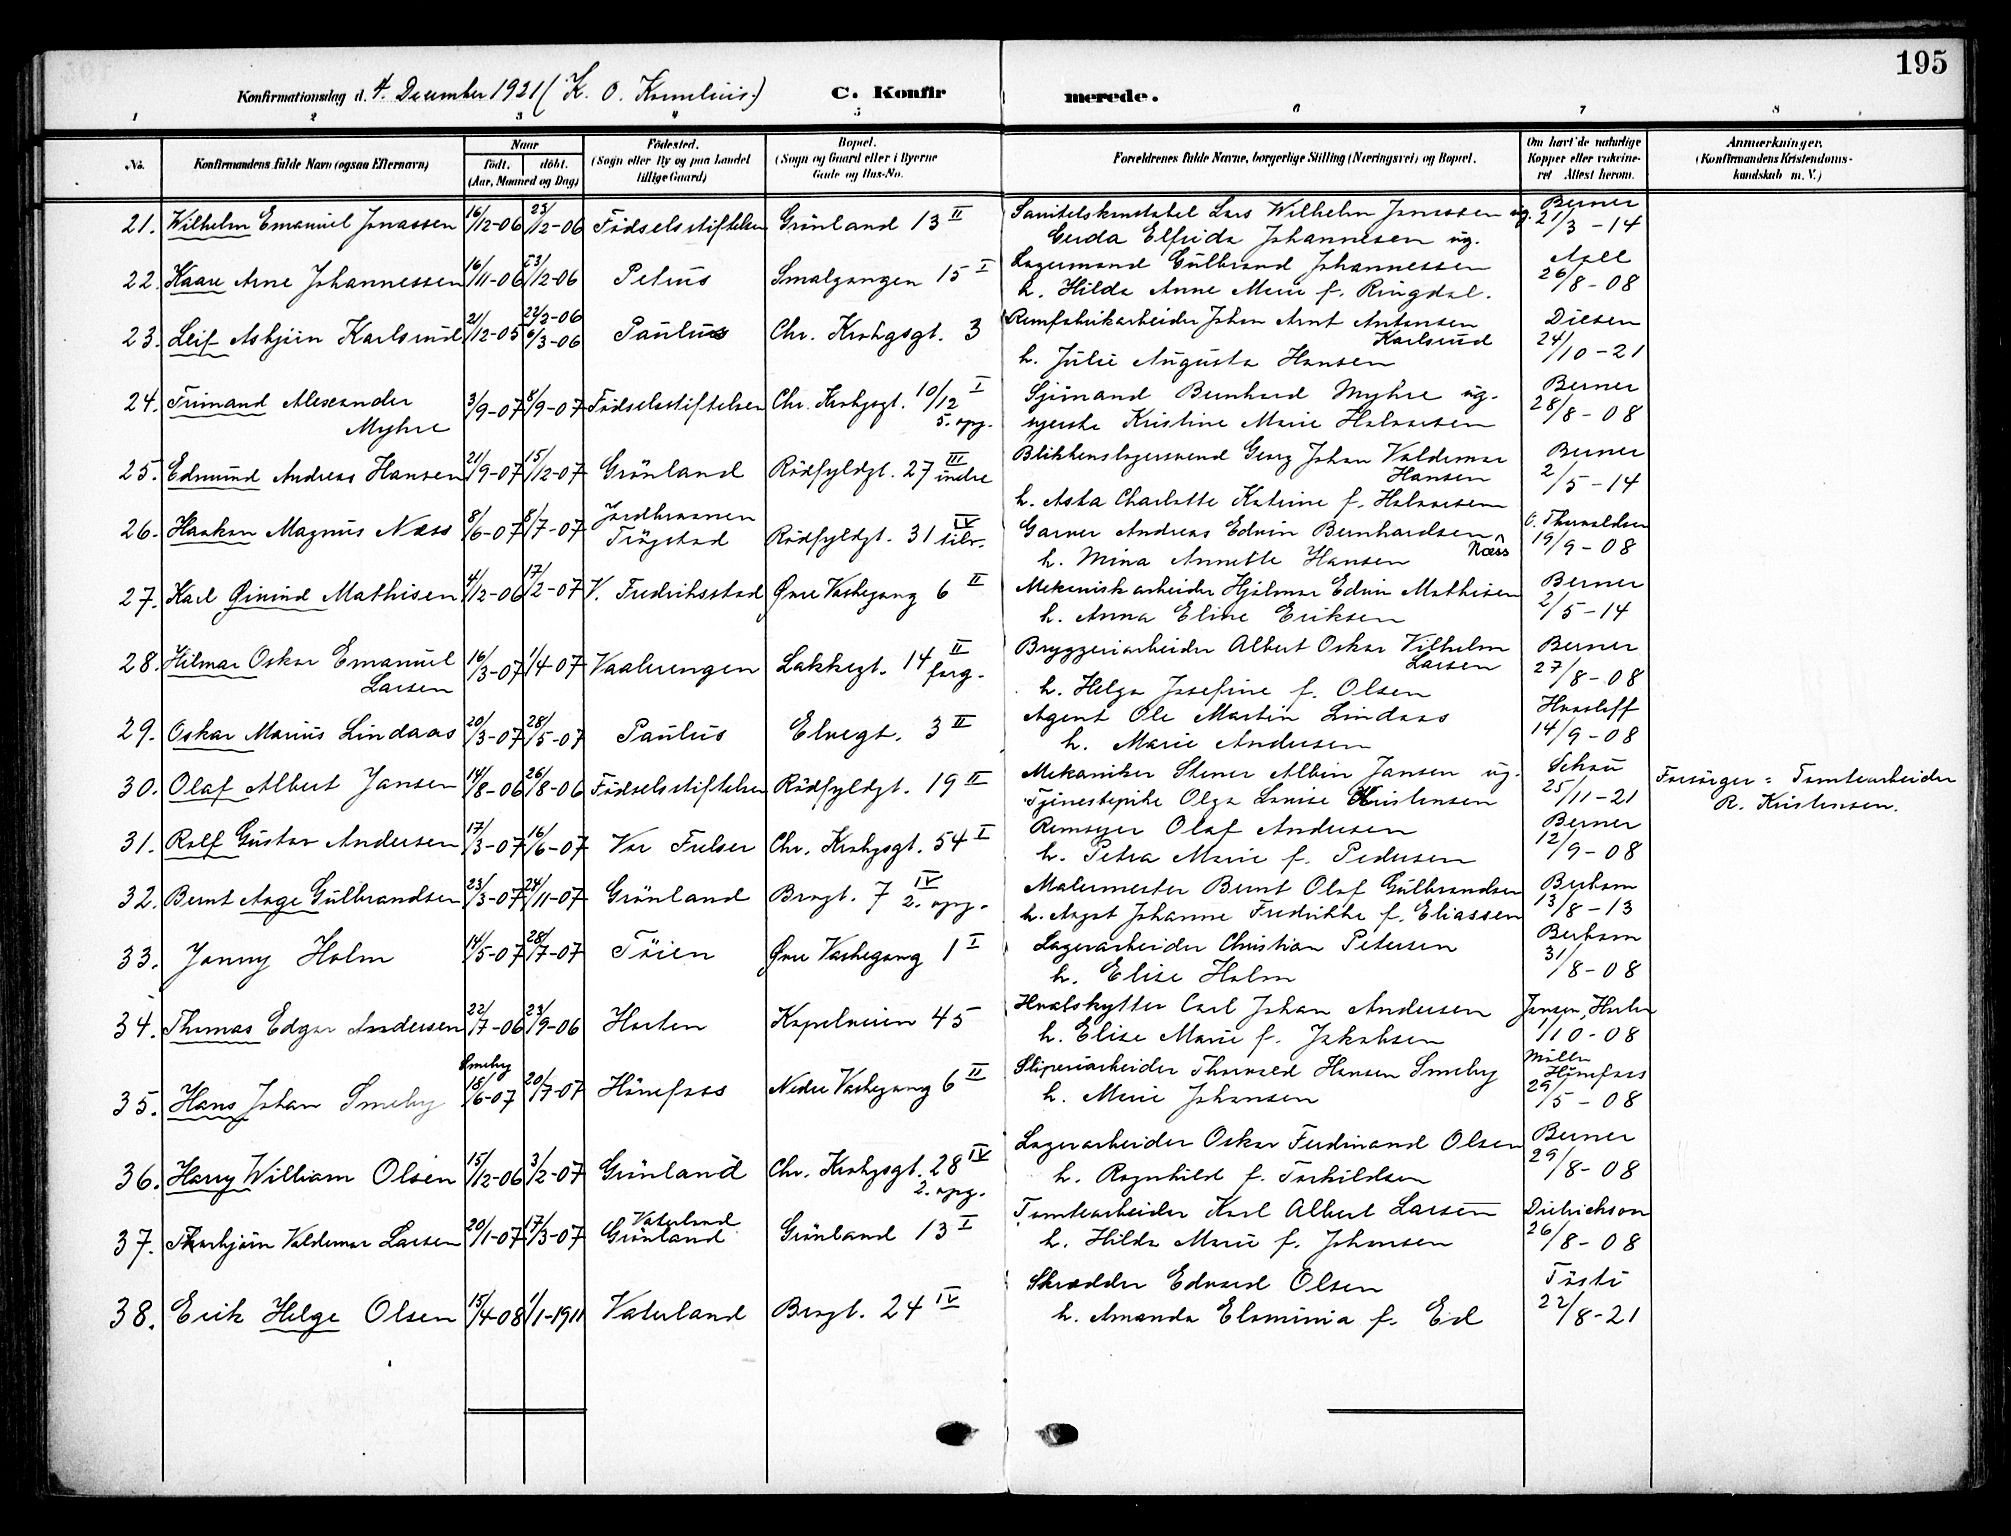 195
Konfirmationsdag d. 4. December 1921 (K. O. Kornelius.) C. Konfirmerede.
1 2 3 4 5 6 7 8
No. Konfirmandens fulde Navn (ogsaa Efternavn) Naar født. døbt. (Aar, Maaned og Dag) Fødested. (Sogn eller By og paa Landet tillige Gaard) Bopæl. (Sogn og Gaard eller i Byerne Gade og Hus-No. Forældrenes fulde Navne, borgerlige Stilling (Næringsvei) og Bopæl. Om havt de naturlige Kopper eller vaksineret Attest herom. Anmærkninger. (Konfirmandens Kristendomskundskab m. V.)
21. Wilhelm Emanuel Jonassen 16/12-06 23/12-06 Fødselsstiftelsen Grønland 13 II Sanitetskonstabel Lars Wilhelm Jonassen ug. Berner
Gerda Elfrida Johannesen ug. 21/3-14
22. Kaare Arne Johannessen 16/11-06 23/12-06 Petrus Smalgangen 15 I Lagermand Gulbrand Johannessen Aall
h. Hilda Anne Marie f. Ringdal. 26/8-08
23. Leif Asbjørn Karlsrud 2/12-05 22/2-06 6/3-06 Paulus Chr. Krohgsgt. 3 Remfabrikarbeider Johan Arnt Antonsen Karlsrud Diesen
h. Julie Augusta Hansen 24/10-21
24. Trimand Alexander Myhre 3/9-07 8/9-07 Fødselsstiftelsen Chr. Krohgsgt. 10/12 I 5. opg. Sjømand Bernhard Myhre ug. Berner
syerske Kristine Marie Halvorsen 28/8-08
25. Edmund Andreas Hansen 21/9-07 15/12-07 Grønland Rødfyldgt. 27 III indre Blikkenslagersvend Georg Johan Valdemar Hansen Berner
h. Asta Charlotte Katrine f. Halvorsen 2/5-14
26. Haakon Magnus Næss 8/6-07 8/7-07 Jordbraaten Trøgstad Rødfyldgt. 31 IV tilv. Garver Andreas Edvin Bernhardsen Næss O. Thorvaldsen
h. Mina Annette Hansen 19/9-08
27. Karl Øivind Mathisen 4/12-06 17/2-07 V. Fredriksstad Øvre Vaskegang 6 II Mekanisk arbeider Hjalmar Edvin Mathisen Berner
h. Anna Eline Eriksen 2/5-14
28. Hilmar Oskar Emanuel Larsen 16/3-07 1/4-07 Vaalerengen Lakkegt. 14 II forg. Bryggeriarbeider Albert Oskar Vilhelm Larsen Berner
h. Helga Josefine f. Olsen 27/8-08
29. Oskar Marius Lindaas 20/3-07 28/5-07 Paulus Elvegt. 3 II Agent Ole Martin Lindaas
h. Marie Andersen 14/9-08
30. Olaf Albert Jansen 14/8-06 26/8-06 Fødselsstiftelsen Rødfyldgt. 19 II Mekaniker Stener Albin Jansen ug. Schau Forsørger = Tomtearbeider
Tjenestepike Olga Louise Kristensen 25/11-21 R. Kristensen.
31. Rolf Gustav Andersen 17/3-07 16/6-07 Vor Frelser Chr. Krohgsgt. 54 I Remsyer Olaf Andersen Berner
h. Petra Marie f. Pedersen 12/9-08
32. Bernt Aage Gulbrandsen 23/3-07 24/11-07 Grønland Brogt. 7 IV 2. opg. Malermester Bernt Olaf Gulbrandsen Berbom
h. Aagot Johanne Fredrikke f. Eliassen 13/8-13
33. Jonny Holm 14/5-07 28/7-07 Tøien Øvre Vaskegang 1 I Lagerarbeider Christian Petersen Berbom
h. Elise Holm 31/8-08
34. Thomas Edgar Andersen 22/7-06 23/9-06 Horten Kapelveien 45 Hvalskytter Carl Johan Andersen Jansen, Horten
h. Elise Marie f. Jakobsen 1/10-08
35. Hans Johan Smeby Smeby 18/6-07 20/7-07 Hønefoss Nedre Vaskegang 6 II Sliperiarbeider Thorvald Hansen Smeby Møller Hønefoss
h. Marie Johansen 29/5-08
36. Harry William Olsen 15/12-06 3/2-07 Grønland Chr. Krohgsgt. 28 IV 2. opg. Lagerarbeider Oskar Ferdinand Olsen Berner
h. Ragnhild f. Torkildsen 29/8-08
37. Thorbjørn Valdemar Larsen 20/1-07 17/3-07 Vaterland Grønland Grønland 13 I Tomtearbeider Karl Albert Larsen Dietrichson
h. Hilda Marie f. Johansen 26/8-08
38. Erik Helge Olsen 15/4-08 1/1-1911 Vaterland Brogt. 24 IV Skrædder Edvard Olsen
h. Amanda Elominia f. Ed 22/8-21